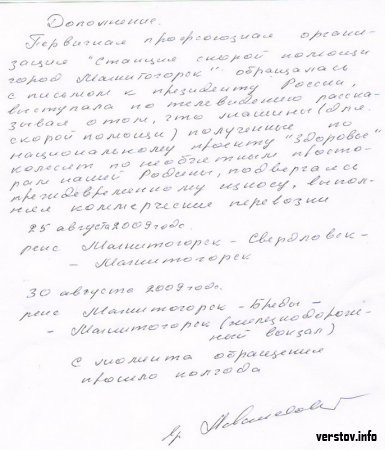 Дополнение.
Первичная профсоюзная органи-
зация "Станция скорой помощи
город Магнитогорск" обращалась
с письмом к президенту России,
выступала по телевидению расска-
зывая о том, что машины (для
скорой помощи) полученные по
национальному проекту "Здоровье"
колесят по необъятным просто-
рам нашей Родины, подвергаясь
преждевременному износу, выпол-
няя коммерческие перевозки
25 августа 2009 года.
рейс Магнитогорск - Свердловск -
- Магнитогорск
30 августа 2009 года.
рейс Магнитогорск - Бреды -
- Магнитогорск (железнодорож-
ный вокзал)
С момента обращения
прошло полгода
verstov.info